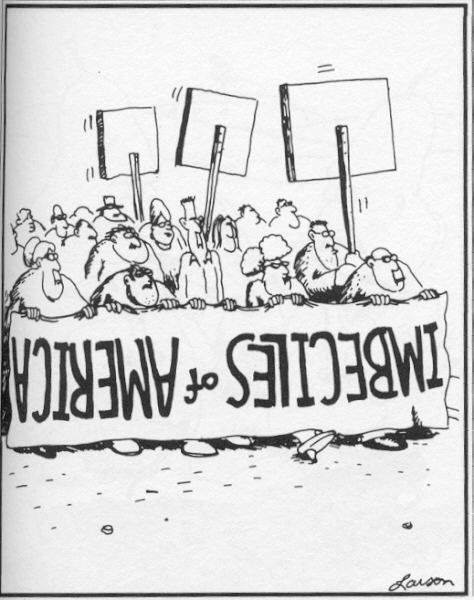 IMBECILES of AMERICA
Larson